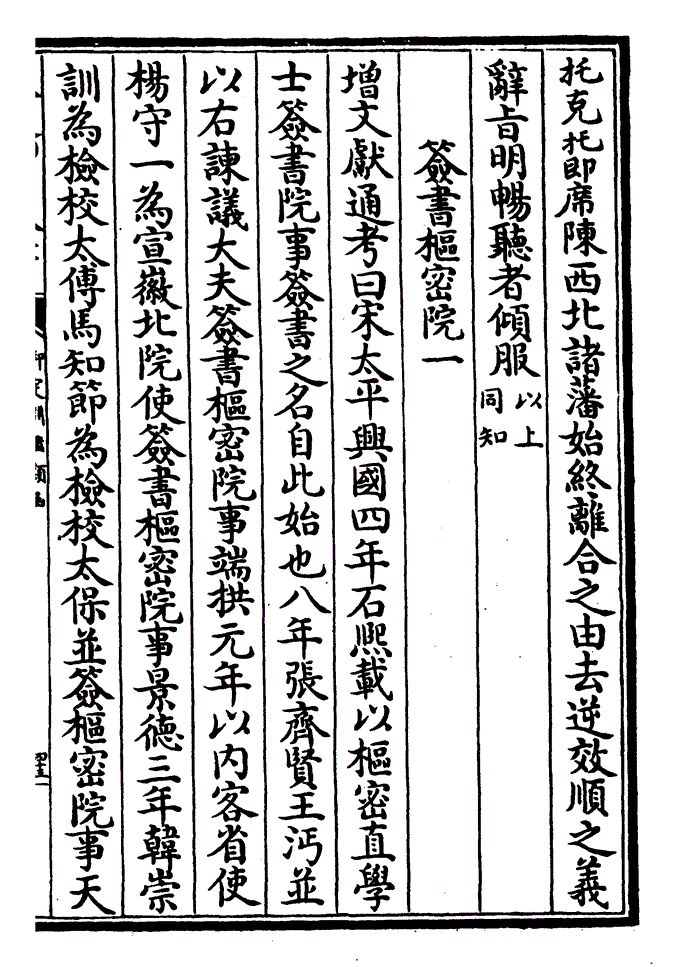 托克托即席陳西北諸藩始終離合之由去逆效順之義
辭旨明暢聽者傾服以上同知
簽書樞密院一
增文獻通考曰宋太平興國四年石熙載以樞密直學
士簽書院事簽書之名自此始也八年張齊賢王沔並
以右諫議大夫簽書樞密院事端拱元年以内客省使
楊守一為宣徽北院使簽書樞密院事景德三年韓崇
訓為檢校太傅馬知節為檢校太保並簽樞密院事天